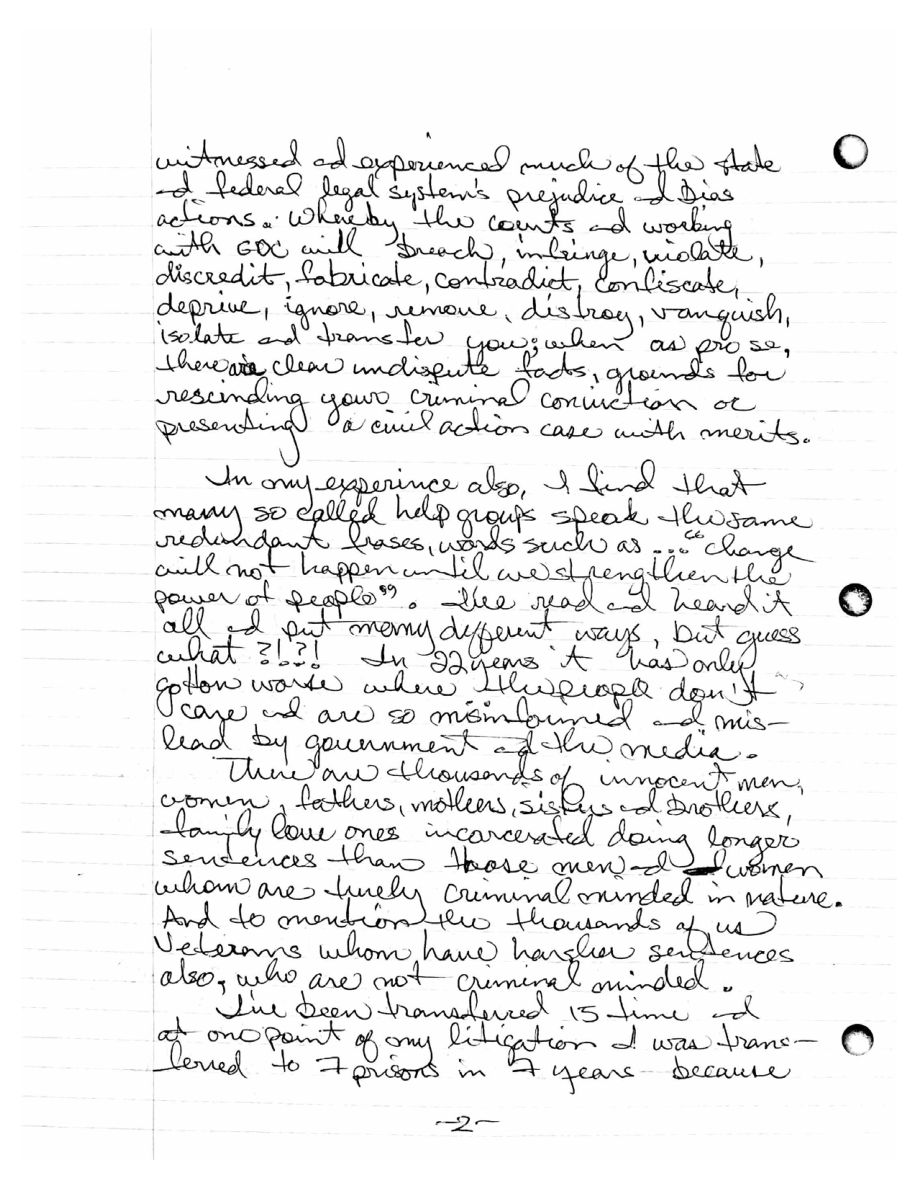 witnessed ad experienced much of the state
ad federal legal system's prejudice ad Bias
actions. Whereby the courts ad working
with GDC will breach, infringe, violate,
discredit, fabricate, contradict, confiscate,
deprive, ignore, remove, distroy, vanquish,
isolate and transfer you; when as pro se,
there are clear undispute facts, grounds for
rescinding your criminal conviction or
presenting a civil action case with merits.
In my experince also, I find that
many so called help groups speak the same
redundant frases, words such as ... "change
will not happen until we strengthen the
power of people". I've read ad heard it
all ad put many different ways, but guess
what ?!?!?! In 22 years it has only
gotton worse where the people don't
care ad are so misinformed ad mis-
lead by government ad the media.
There are thousands of innocent men,
women, fathers, mothers, sisters ad brothers,
family love ones incarcerated doing longer
sentences than those men ad women
whom are turely criminal minded in nature.
And to mention the thousands of us
Veterans whom have harsher sentences
also, who are not criminal minded.
I've been transferred 15 time ad
at one point of my litigation I was trans-
ferred to 7 prisons in 7 years because
-2-